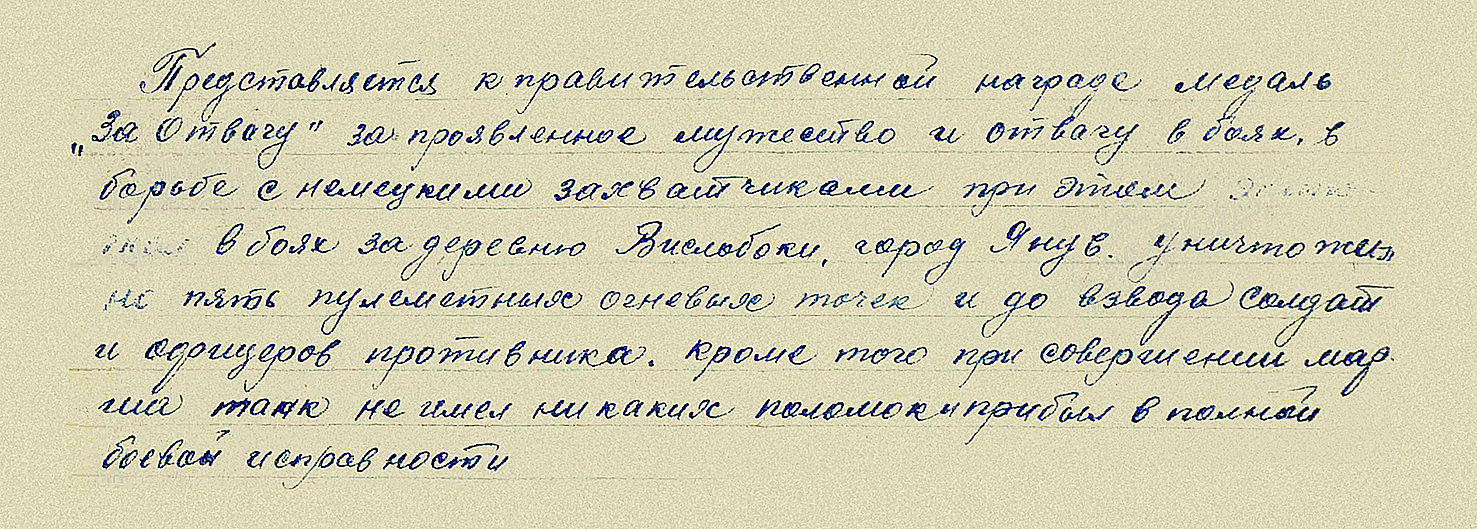 Представляется к правительственной награде медаль
„За Отвагу" за проявленное мужество и отвагу в боях, в
борьбе с немецкими захватчиками при этом
в боях за деревню Вислобоки, город Янув. уничтоже-
но пять пулеметных огневых точек и до взвода солдат
и офицеров противника. кроме того при совершении мар-
ша танк не имел никаких поломок и прибыл в полной
боевой исправности